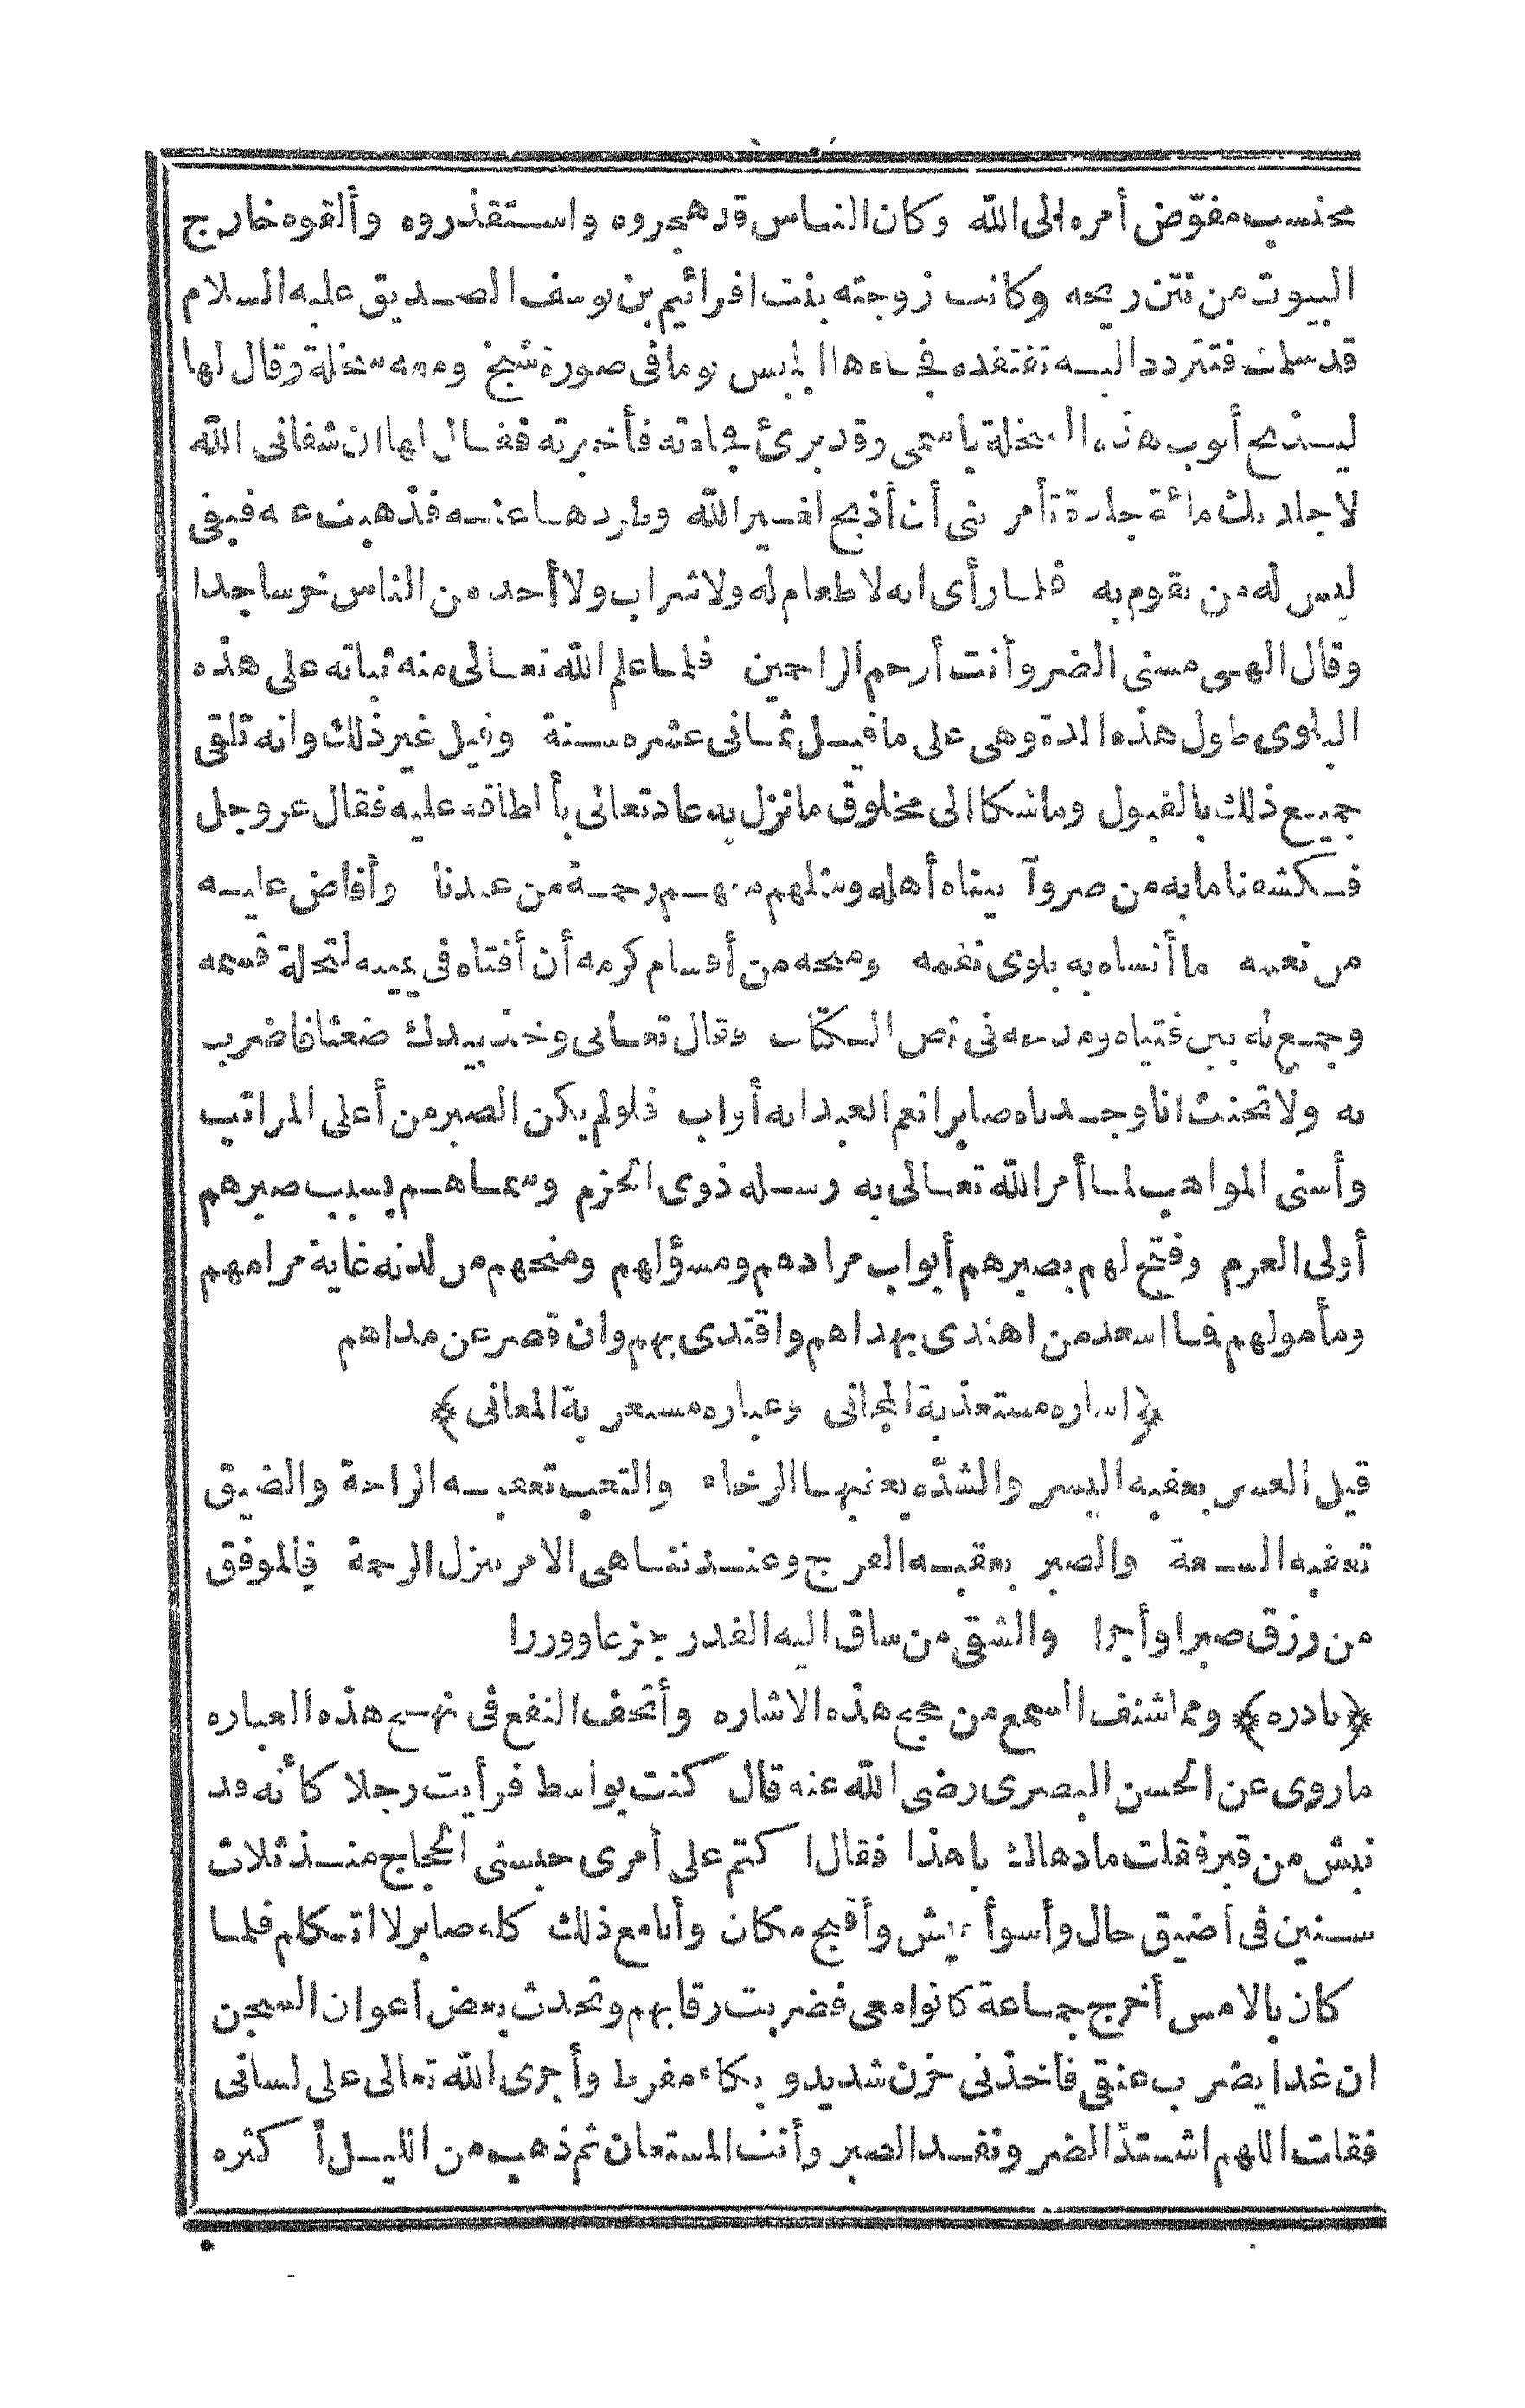 محتسب مفوّض أمره الى الله وكان الناس قد هجروه واستقذروه وألقوه خارج
البيوت من نتن ريحه وكانت زوجته بنت افرائيم بن يوسف الصديق عليه السلام
قد سلمت فتتردد اليه تفتقده فجاءها ابليس يوما فى صورة شيخ ومعه سخلة وقال لها
ليذبح أيوب هذه السخلة باسمى وقد برئ فجاءته فأخبرته فقال لها ان شفانى الله
لاجلدنك مائة جلدة تأمرينى أن أذبح لغير الله وطردها عنه فذهبت عنه فبقى
ليس له من يقوم به فلما رأى انه لا طعام له ولا شراب ولا أحد من الناس خر ساجدا
وقال الهى مسنى الضر وأنت أرحم الراحمين فلما علم الله تعالى منه ثباته على هذه
البلوى طول هذه المدة وهى على ما قيل ثمانى عشره سنة وقيل غير ذلك وانه تلقى
جميع ذلك بالقبول وما شكا الى مخلوق ما نزل به عاد تعالى بألطافه عليه فقال عز وجل
فكشفنا ما به من ضر وآتيناه أهله ومثلهم معهم رحمة من عندنا وأفاض عليه
من نعمه ما أنساه به بلوى نقمه ومنحه من أقسام كرمه أن أفتاه فى يمينه لتحلة قسمه
وجمع له بين فتياه ومدحه فى نص الكتاب وقال تعالى وخذ بيدك ضغثا فاضرب
به ولا تحنث انا وجدناه صابرا نعم العبد انه أواب فلو لم يكن الصبر من أعلى المراتب
وأسنى المواهب لما أمر الله تعالى به رسله ذوى الحزم وسماهم بسبب صبرهم
أولى العزم وفتح لهم بصبرهم أبواب مرادهم ومسؤلهم ومنحهم من لدنه غاية مرامهم
ومأمولهم فما اسعد من اهتدى بهداهم واقتدى بهم وان قصر عن مداهم
﴿اشاره مستعذبة المجانى وعباره مستغربة المعانى﴾
قيل العسر يعقبه اليسر والشدّه يعقبها الرخاء والتعب تعقبه الراحة والضيق
تعقبه السعة والصبر يعقبه الفرج وعند تناهى الامر تنزل الرحمة فالموفق
من رزق صبرا وأجرا والشقى من ساق اليه القدر جزعا ووزرا
﴿نادره﴾ ومما شنف السمع من حجج هذه الاشاره وأتحف النفع فى نهج هذه العباره
ما روى عن الحسن البصرى رضى الله عنه قال كنت بواسط فرأيت رجلا كأنه قد
نبش من قبر فقلت ما دهاك يا هذا فقال ا كتم على أمرى حبسنى الحجاج منذ ثلاث
سنين فى أضيق حال وأسوأ عيش وأقبح مكان وأنا مع ذلك كله صابر لا اتكلم فلما
كان بالامس أخرج جماعة كانوا معى فضربت رقابهم وتحدث بعض أعوان السجن
ان غدا يضرب عنقى فأخذنى حزن شديد و بكاء مفرط وأجرى الله تعالى على لسانى
فقلت اللهم اشتدّ الضر ونفد الصبر وأنت المستعان ثم ذهب من الليل أ كثره